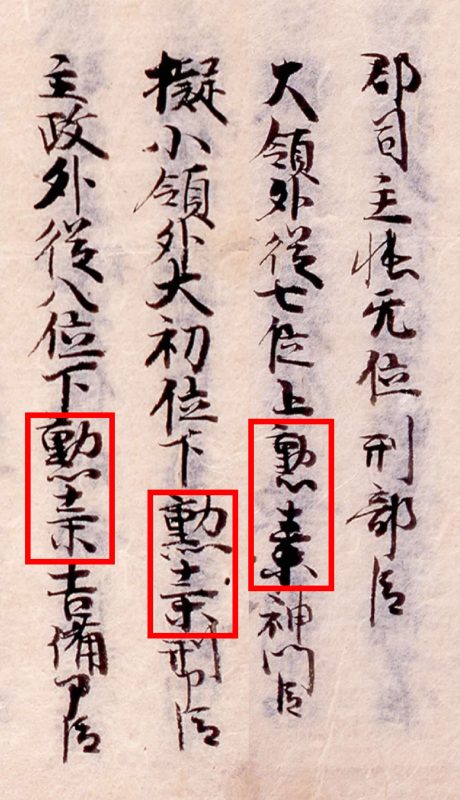 郡司主帳无位刑部臣
大領外從七位上勲業神門臣
擬小領外大初位下勲業刑部臣
主政外從八位下勲業吉備部臣